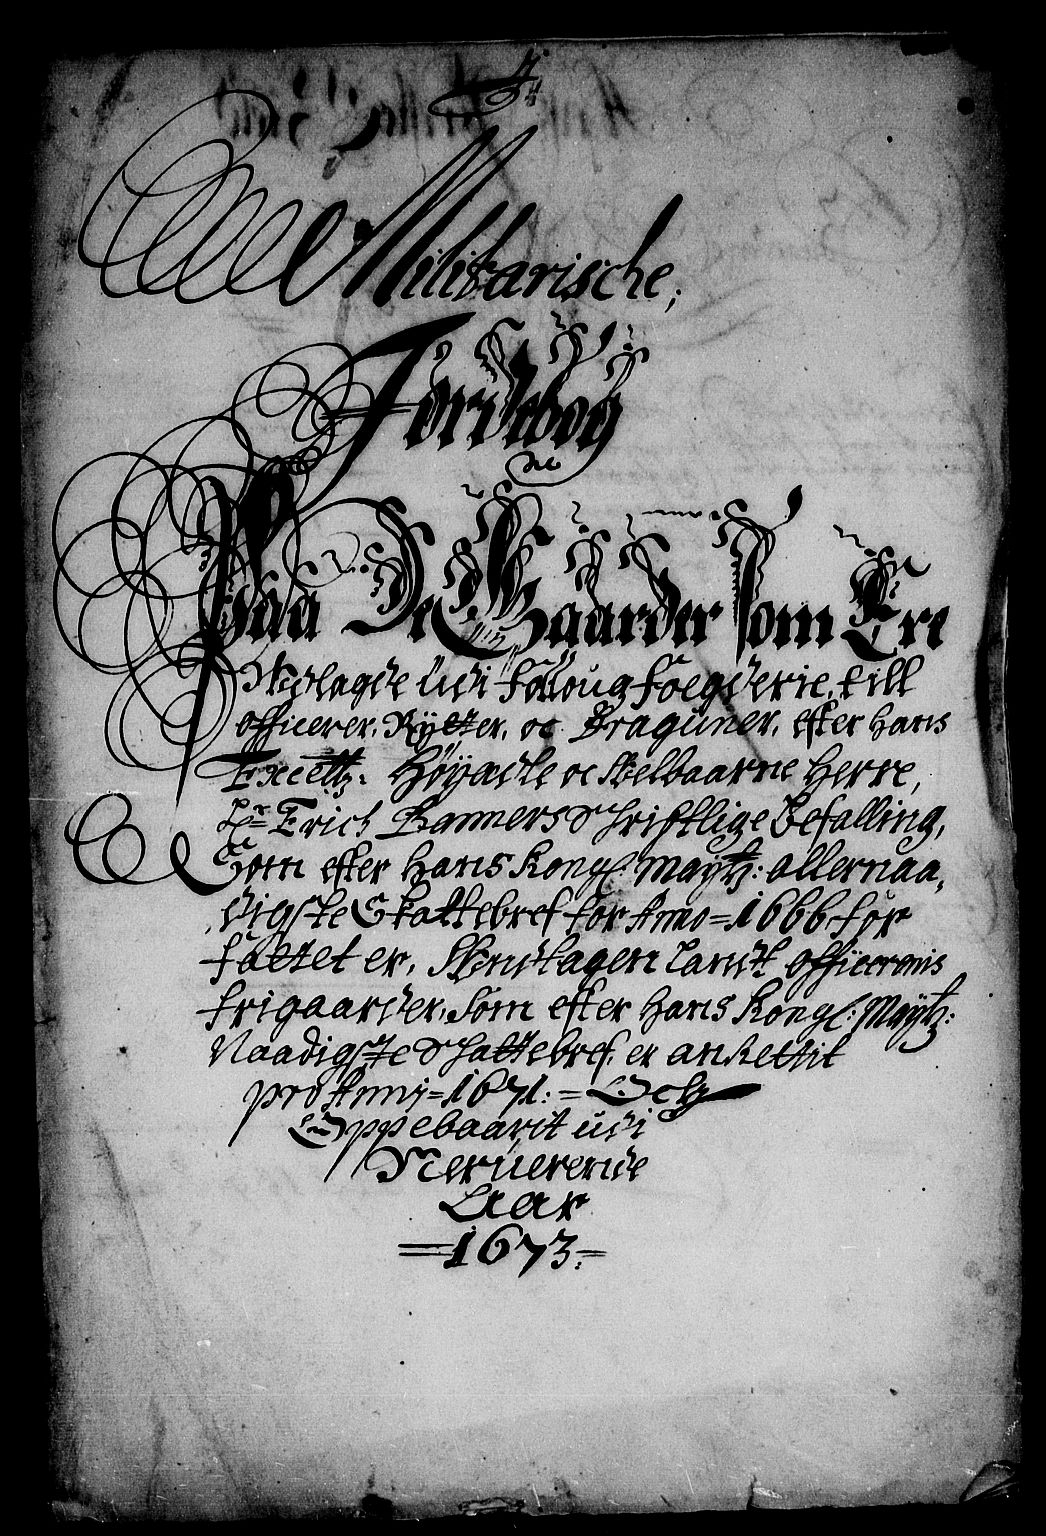 Militarische,
Jordebog
Paa De Gaarder som Ere
udlagde udi foegderie, till
officerer, Rÿtter, oc Draguner, efter hans
Excellz: Höÿædle oc Velbaarne Herre,
Hr: Erich Banners Schrifftlige Befalling,
Som efter hans Kongl: Maytz: allernaa,
digste Skattebref for Anno = 1666 for
fattet er, Undtagen Landt officerernis
frigaarder, som efter hans Kongl: Maytz:
Naadigste Schattebref, er anrettit
pro Anny = 1671: = Och
Oppebaarit udi
Nerverende
Aar
= 1673: =